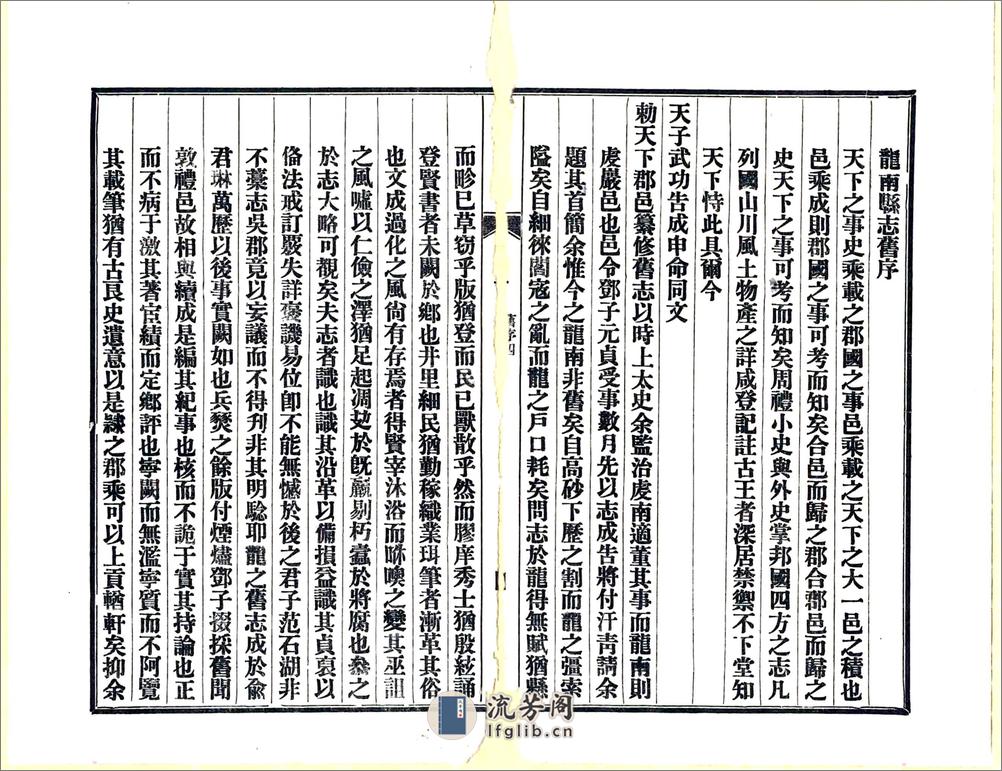 龍南縣志舊序
天下之事史乘載之郡國之事邑乘載之天下之大一邑之積也
邑乘成則郡國之事可考而知矣合邑而歸之郡合郡邑而歸之
史天下之事可考而知矣周禮小史與外史掌邦國四方之志凡
列國山川風土物產之詳咸登記註古王者深居禁禦不下堂知
天下恃此具爾今
天子武功告成申命同文
勅天下郡邑纂修舊志以時上太史余監治虔南適董其事而龍南則
虔嚴邑也邑令鄧子元貞受事數月先以志成告將付汗青請余
題其首簡余惟今之龍南非舊矣自高砂下歷之割而龍之彊索
隘矣自細徠閻寇之亂而龍之戶口耗矣問志於龍得無賦猶縣
舊序四
而畛已草窃乎版猶登而民已獸散乎然而膠庠秀士猶殷絃誦
登賢書者未闕於鄉也井里細民猶勤稼織業珥筆者漸革其俗
也文成過化之風尙有存焉者得賢宰沐浴而咻噢之變其巫詛
之風噓以仁儉之澤猶足起凋攰於旣羸剔朽蠹於將腐也叅之
於志大略可觀矣夫志者識也識其沿革以備損益識其貞哀以
偹法戒訂覈失詳褒譏易位卽不能無憾於後之君子范石湖非
不藁志吳郡竟以妄議而不得刋非其明騐耶龍之舊志成於俞
君琳萬歷以後事實闕如也兵燹之餘版付煙燼鄧子掇採舊聞
敦禮邑故相與續成是編其紀事也核而不詭于實其持論也正
而不病于激其著宦績而定鄉評也寧闕而無濫寧質而不阿覽
其載筆猶有古良史遺意以是隷之郡乘可以上貢輶軒矣抑余
流芳阁
lfglib.cn